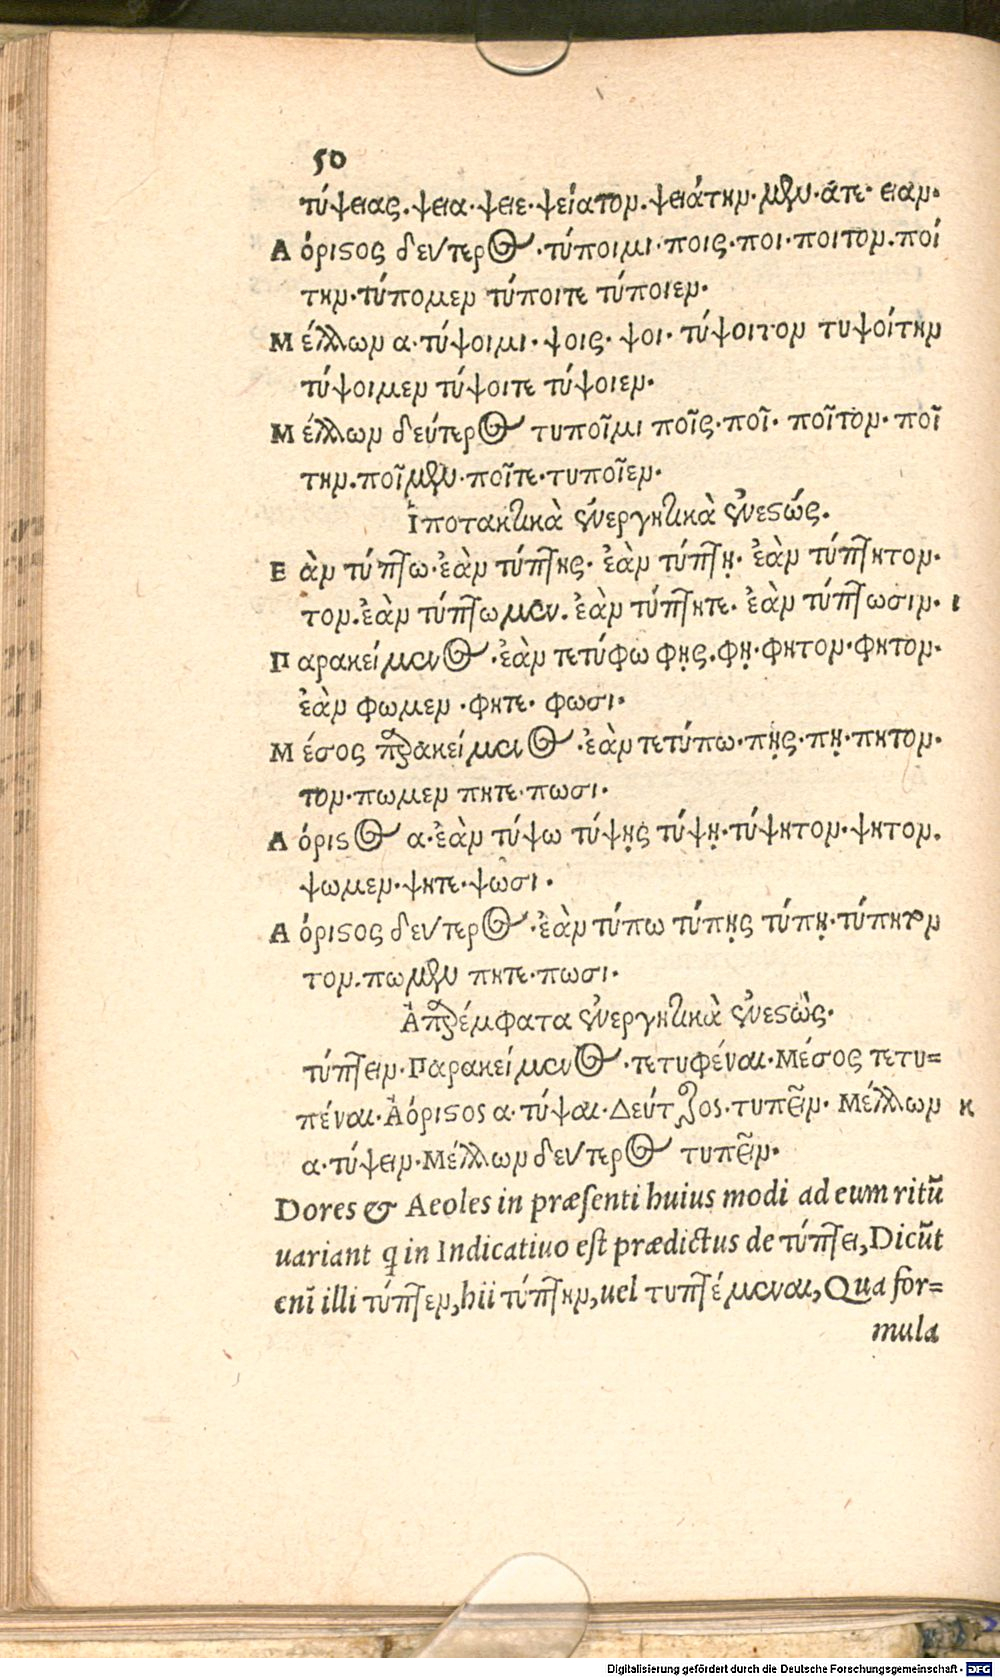 50
τύψειας. ψεια· ψειε· ψείατον. ψειάτην· μεν· άτε· ειαν·
Αόριστος δεύτερος · τύποιμι· ποις· ποι· ποιτον. ποί
την· τύπομεν τύποιτε τύποιεν·
Μέλλων α· τύψοιμι· ψοις· ψοι· τύψοιτον τυψοίτην
τύψοιμεν τύψοιτε τύψοιεν·
Μέλλων δεύτερος τυποῖμι ποῖς· ποῖ· ποῖτον· ποῖ
την. ποῖμεν· ποῖτε· τυποῖεν·
Ἱποτακτικὰ ἐνεργητικὰ ἐνεστώς.
Εὰν τύπτω· ἐὰν τύπτῃς· ἐὰν τύπτῃ· ἐὰν τύπτητον·
τον. ἐὰν τύπτωμεν. ἐὰν τύπτητε· ἐὰν τύπτωσιν· ι
Παρακείμενος · ἐὰν τετύφω φῃς. φῃ· φητον· φητον·
ἐὰν φωμεν · φητε· φωσι·
Μέσος παρακείμενος · ἐὰν τετύπω· πῃς· πῃ· πητον·
τον· πωμεν πητε· πωσι·
Αόριστος α· ἐὰν τύψω τύψῃς τύψῃ· τύψητον· ψητον.
ψωμεν· ψητε· ψωσι·
Αόριστος δεύτερος · ἐὰν τύπω τύπῃς τύπῃ· τύπητον
τον. πωμεν πητε· πωσι·
Ἀπαρέμφατα ἐνεργητικὰ ἐνεστὼς·
τύπτειν· Παρακείμενος · τετυφέναι· Μέσος τετυ=
πέναι· Ἀόριστος α· τύψαι· Δεύτερος· τυπεῖν· Μέλλων κ
α· τύψειν· Μέλλων δεύτερος τυπεῖν·
Dores & Aeoles in præſenti huius modi ad eum ritũ
uariant ꝗ in Indicatiuo eſt prædictus de τύπτει, Dicũt
enĩ illi τύπτεν, hii τύπτην, uel τυπτέμεναι, Qua for=
mula
Digitalisierung gefördert durch die Deutsche Forschungsgemeinschaft - DFG